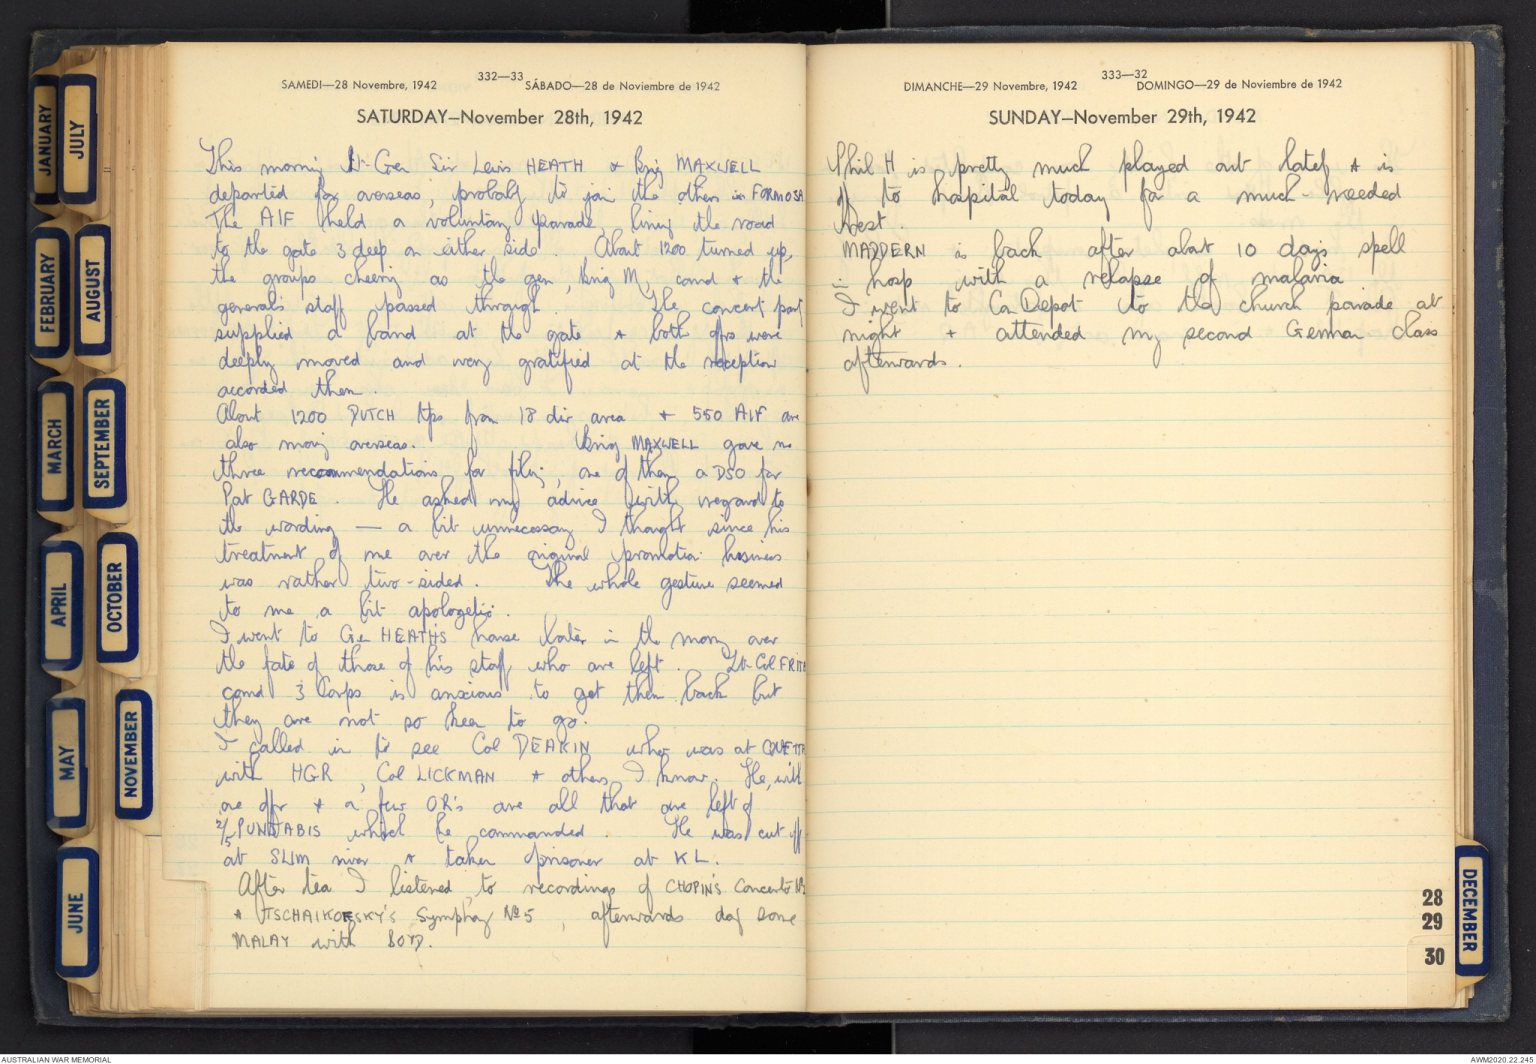 JANUARY
JULY
FEBRUARY
AUGUST
MARCH
SEPTEMBER
APRIL
OCTOBER
MAY
NOVEMBER
JUNE
332—33
SAMEDI—28 Novembre, 1942 SÁBADO—28 de Noviembre de 1942
SATURDAY—November 28th, 1942
This morning Lt-Gen Sir Lewis HEATH + Brig MAXWELL
departed for overseas, probably to join the others in FORMOSA
The AIF held a voluntary parade, lining the road
to the gate 3 deep on either side. About 1200 turned up,
the groups cheering as the gen, Brig M, comd + the
general's staff passed through. The concert party
supplied a band at the gate + both offrs were
deeply moved and very gratified at the reception
accorded them.
About 1200 DUTCH tps from 18 div area + 550 AIF are
also moving overseas. Brig MAXWELL gave me
three recommendations for filing, one of them a DSO for
Pat GARDE. He asked my advice with regard to
the wording — a bit unnecessary I thought since his
treatment of me over the original promotion business
was rather two-sided. The whole gesture seemed
to me a bit apologetic.
I went to Gen HEATH'S house later in the morng over
the fate of those of his staff who are left. Lt-Col
comd 3 Corps is anxious to get them back but
they are not so keen to go.
I called in to see Col DEAKIN who was at QUETTA
with HGR, Col LICKMAN + others I know. He, with
one offr + a few OR's are all that are left of
2/5 PUNJABIS which he commanded. He was cut off
at SLIM river + taken prisoner at KL.
After tea I listened to recordings of CHOPIN'S Concerto No
+ TSCHAIKOFSKY'S Symphony No 5, afterwards doing some
MALAY with BOYD.
333—32
DIMANCHE—29 Novembre, 1942 DOMINGO—29 de Noviembre de 1942
SUNDAY—November 29th, 1942
Phil H is pretty much played out lately + is
off to hospital today for a much-needed
rest
MADDERN is back after about 10 days spell
in hosp with a relapse of malaria
I went to Con Depot to the church parade at
night + attended my second German class
afterwards.
28
29
30
DECEMBER
AUSTRALIAN WAR MEMORIAL
AWM2020.22.245